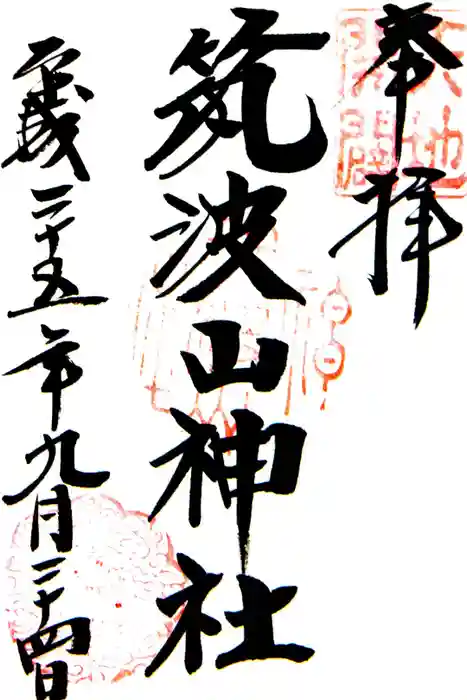 奉拝
天地
開闢
筑波山神社
平成二十五年九月二十四日